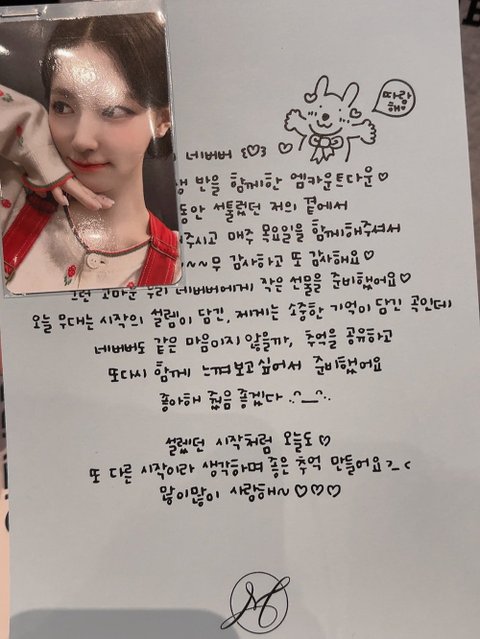 따랑
해
네버버 ꒰♡꒱
반을 함께한 엠카운트다운♡
동안 서툴렀던 저의 곁에서
주시고 매주 목요일을 함께해주셔서
~~~무 감사하고 또 감사해요♡
고마운 우리 네버버에게 작은 선물을 준비했어요♡
오늘 무대는 시작의 설렘이 담긴, 저에게는 소중한 기억이 담긴 곡인데
네버버도 같은 마음이지 않을까, 추억을 공유하고
또다시 함께 느껴보고싶어서 준비했어요
좋아해 줬음 좋겠다 .^__^.
설렜던 시작처럼 오늘도♡
또 다른 시작이라 생각하며 좋은 추억 만들어요
많이많이 사랑해~♡♡♡
M